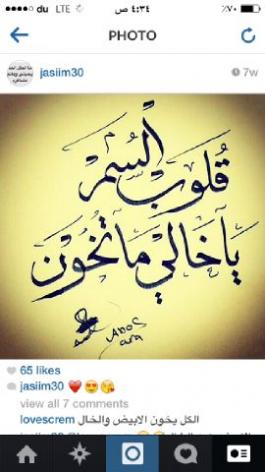 du LTE
٤:٣٤ ص
٪٧٠
PHOTO
jasiim30
7w
قُلوبْ ألسُمر
يآخالي مآتخُون
65 likes
jasiim30
view all 7 comments
lovescrem الكل يخون الابيض والخال